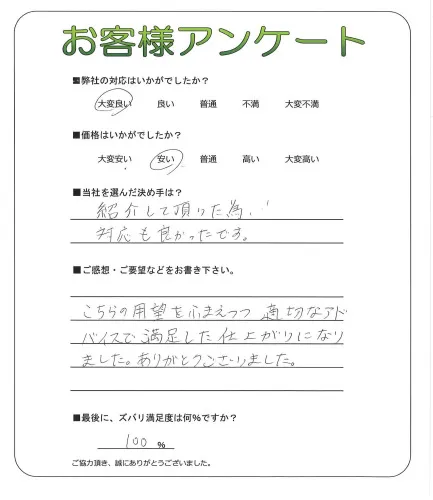 お客様アンケート
■弊社の対応はいかがでしたか？
大変良い 良い 普通 不満 大変不満
■価格はいかがでしたか？
大変安い 安い 普通 高い 大変高い
■当社を選んだ決め手は？
紹介して頂いた為。
対応も良かったです。
■ご感想・ご要望などをお書き下さい。
こちらの用望をふまえつつ 適切なアド
バイスで満足した仕上がりになり
ました。ありがとうございました。
■最後に、ズバリ満足度は何％ですか？
100 %
ご協力頂き、誠にありがとうございました。